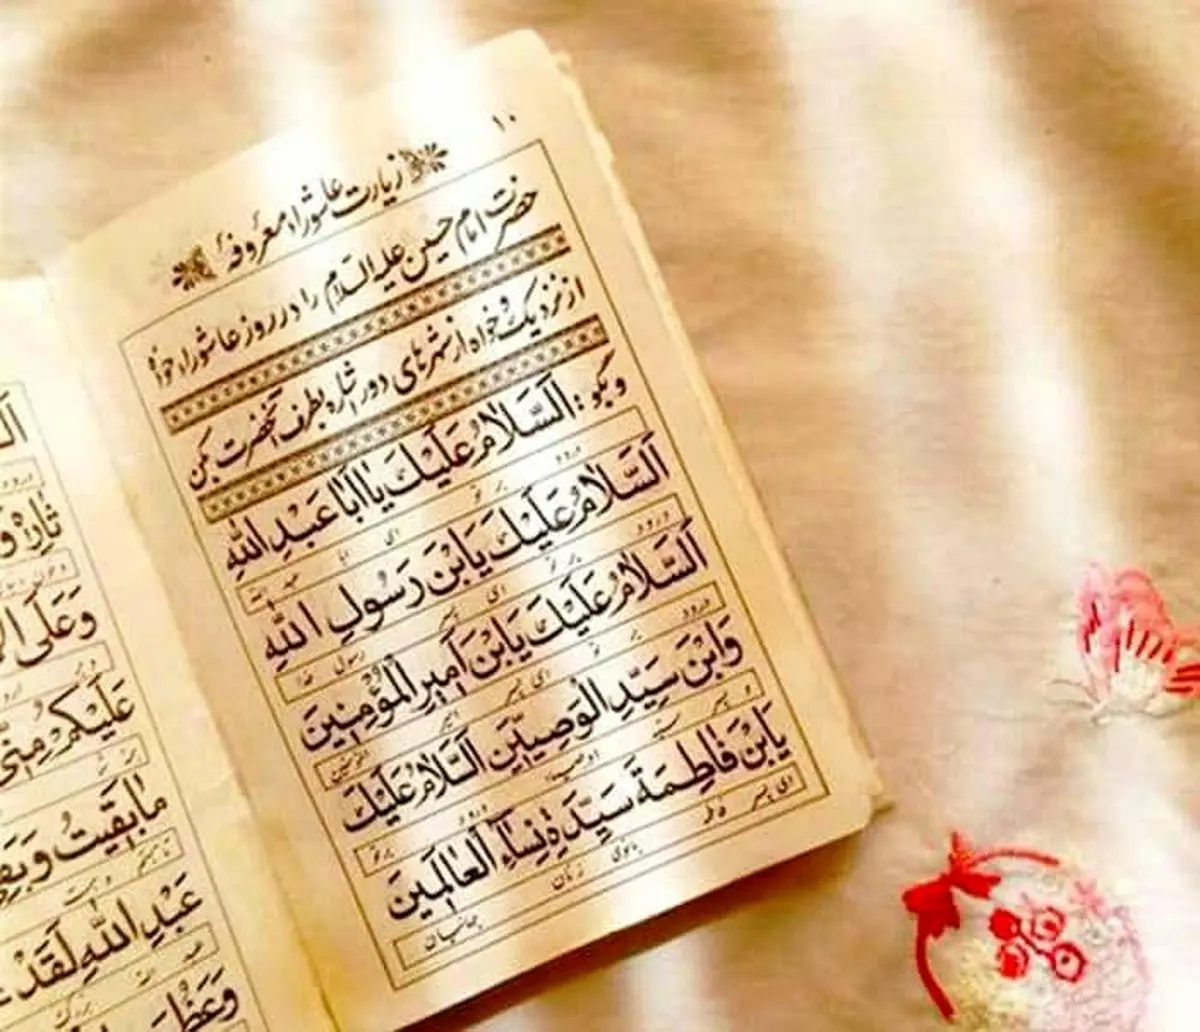 ۱۰
زیارت عاشوراء معروفهٔ
حضرت امام حسین علیه السلام را در روز عاشوراء خواه
از نزدیک و خواه از شهرهای دور اشاره بطرف آنحضرت بکن
و بگو: اَلسَّلامُ عَلَیْکَ یا اَبا عَبْدِ اللّٰهِ
درود بر تو ای ابا عبد الله
اَلسَّلامُ عَلَیْکَ یَابْنَ رَسُولِ اللّٰهِ
درود بر تو ای پسر رسول خدا
اَلسَّلامُ عَلَیْکَ یَابْنَ اَمیرِ الْمُؤْمِنینَ
درود بر تو ای پسر امیر المؤمنین
وَابْنَ سَیِّدِ الْوَصِیّینَ اَلسَّلامُ عَلَیْکَ
و پسر سید اوصیاء درود بر تو
یَابْنَ فاطِمَةَ سَیِّدَةِ نِساءِ الْعالَمینَ
ای پسر فاطمه بانوی زنان جهانیان
ثارَهُ وَ
وَعَلَی
عَلَیْکُمْ مِنّی
ما بَقیتُ وَ بَقِیَ
عَبْدِ اللّٰهِ لَقَدْ
وَعَظُمَ